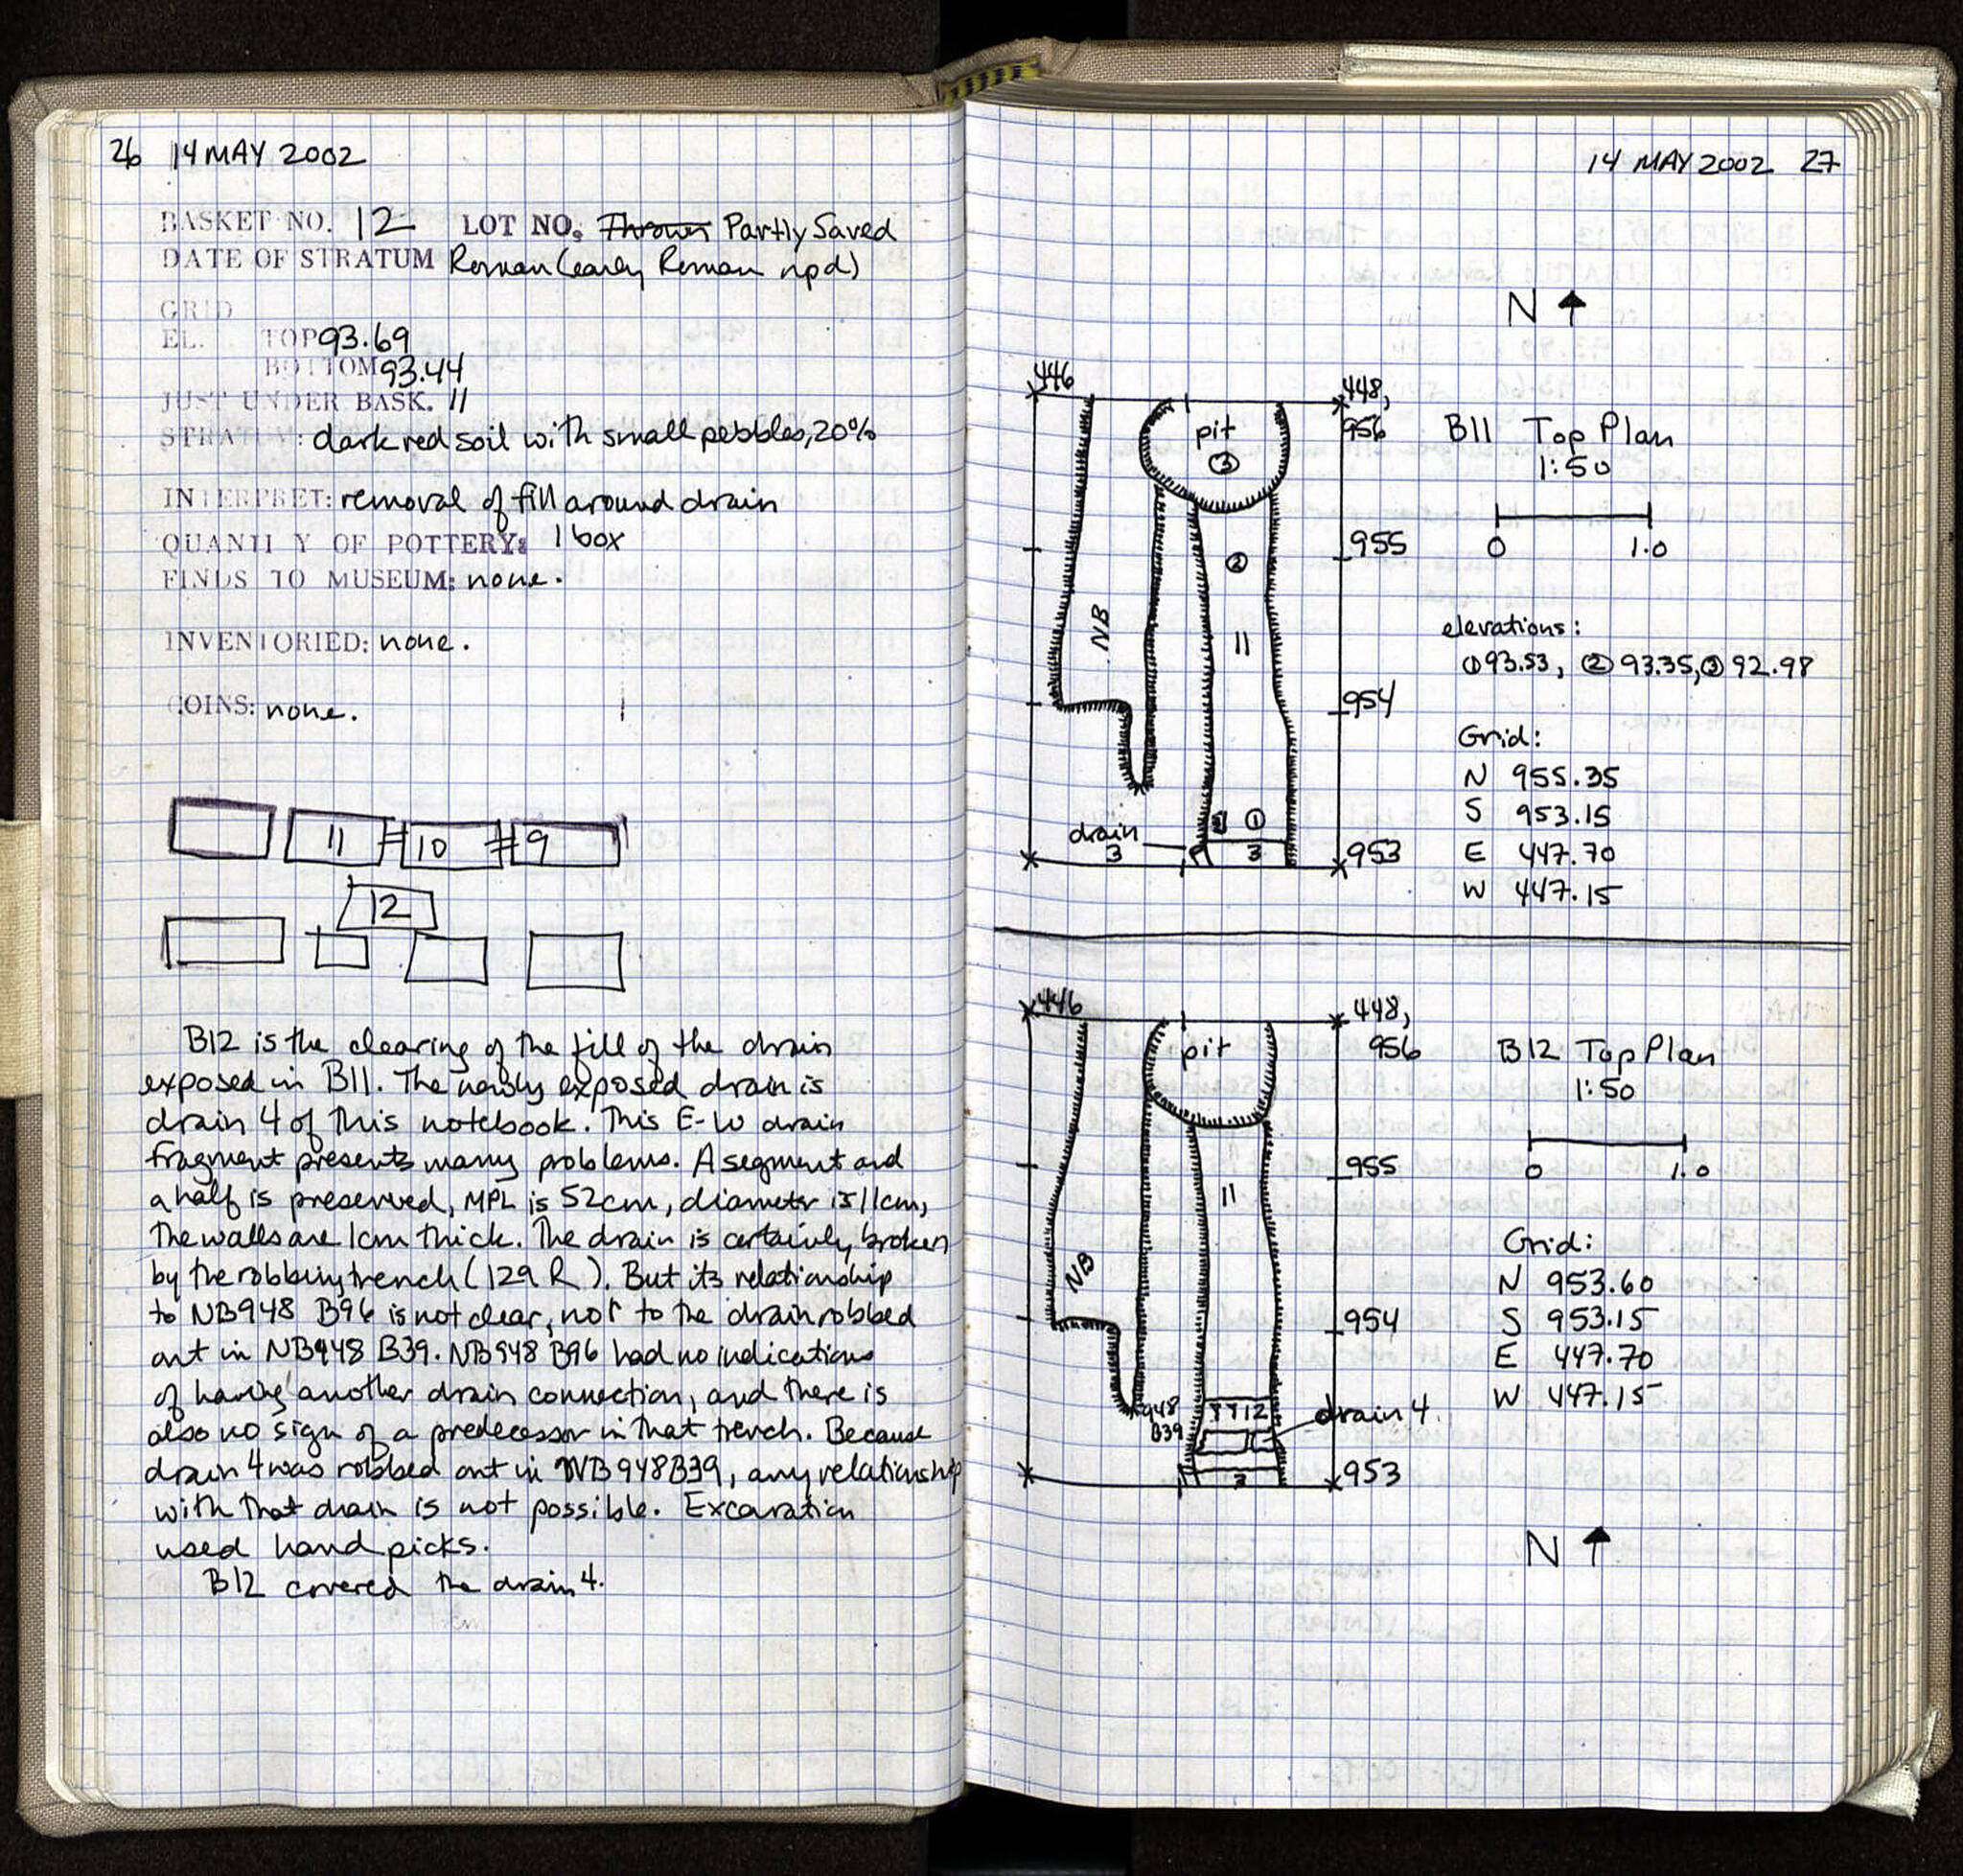 26 14 MAY 2002
BASKET NO. 12 LOT NO. Thrown Partly Saved
DATE OF STRATUM Roman (early Roman npd)
GRID
EL. TOP 93.69
BOTTOM 93.44
JUST UNDER BASK. 11
STRATUM: dark red soil with small pebbles, 20%
INTERPRET: removal of fill around drain
QUANTI Y OF POTTERY: 1 box
FINDS TO MUSEUM: none.
INVENTORIED: none.
COINS: none.
11 10 9
12
B12 is the clearing of the fill of the drain
exposed in B11. The newly exposed drain is
drain 4 of this notebook. This E-W drain
fragment presents many problems. A segment and
a half is preserved, MPL is 52cm, diameter is 11cm,
the walls are 1cm thick. The drain is certainly broken
by the robbing trench (129 R). But its relationship
to NB948 B96 is not clear, nor to the drain robbed
out in NB948 B39. NB948 B96 had no indications
of having another drain connection, and there is
also no sign of a predecessor in that trench. Because
drain 4 was robbed out in NB948B39, any relationship
with that drain is not possible. Excavation
used hand picks.
B12 covered the drain 4.
14 MAY 2002 27
N
446
448,
956
pit
③
B11 Top Plan
1:50
955
0 1.0
②
NB
11
elevations:
①93.53, ② 93.35, ③ 92.98
954
Grid:
N 955.35
S 953.15
E 447.70
W 447.15
①
drain
3
3
953
446
448,
956
pit
B12 Top Plan
1:50
955
0 1.0
11
NB
Grid:
N 953.60
S 953.15
E 447.70
W 447.15
954
948
B39
12
drain 4.
3
953
N